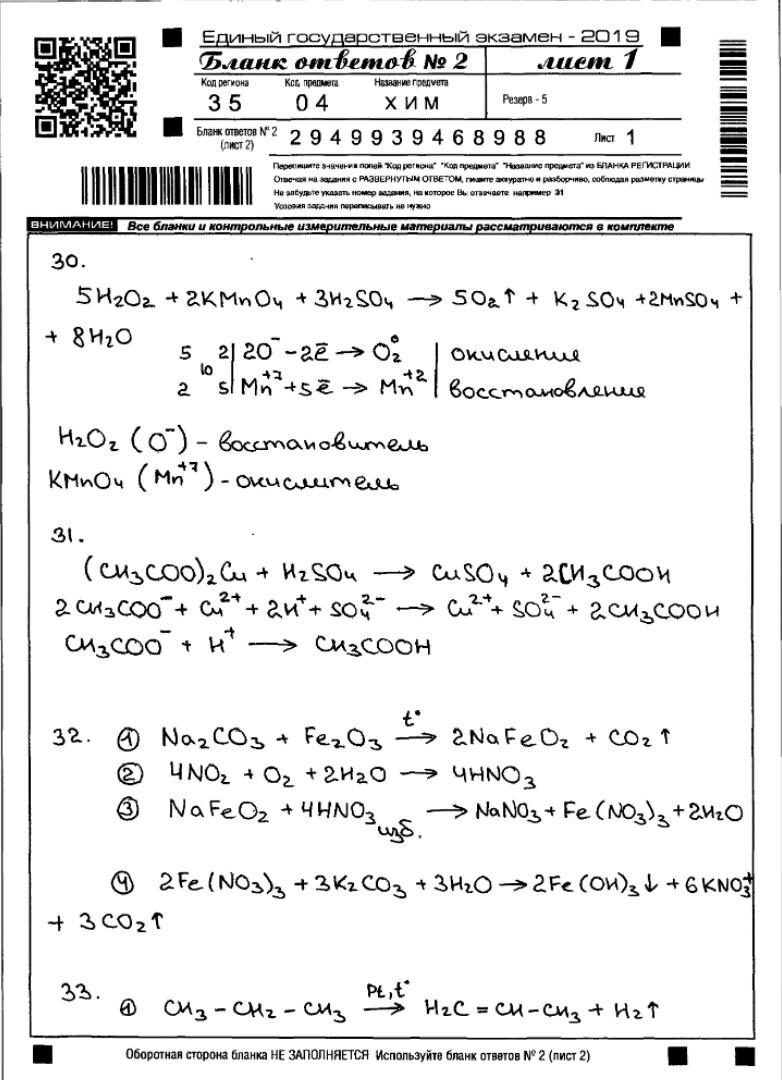 Единый государственный экзамен - 2019
Бланк ответов № 2 лист 1
Код региона Код предмета Название предмета
35 04 ХИМ Резерв - 5
Бланк ответов № 2 (лист 2) 2949939468988 Лист 1
Перепишите значения полей "Код региона" "Код предмета" "Название предмета" из БЛАНКА РЕГИСТРАЦИИ
Отвечая на задания с РАЗВЕРНУТЫМ ОТВЕТОМ, пишите аккуратно и разборчиво, соблюдая разметку страницы
Не забудьте указать номер задания, на которое Вы отвечаете например 31
Условия задания переписывать не нужно
ВНИМАНИЕ! Все бланки и контрольные измерительные материалы рассматриваются в комплекте
30.
5H₂O₂ + 2KMnO₄ + 3H₂SO₄ → 5O₂↑ + K₂SO₄ + 2MnSO₄ +
+ 8H₂O
5 2| 2O⁻ - 2ē → O₂⁰ | окисление
10
2 5| Mn⁺⁷ + 5ē → Mn⁺² | восстановление
H₂O₂ (O⁻) - восстановитель
KMnO₄ (Mn⁺⁷) - окислитель
31.
(CH₃COO)₂Cu + H₂SO₄ → CuSO₄ + 2CH₃COOH
2CH₃COO⁻ + Cu²⁺ + 2H⁺ + SO₄²⁻ → Cu²⁺ + SO₄²⁻ + 2CH₃COOH
CH₃COO⁻ + H⁺ → CH₃COOH
32. ① Na₂CO₃ + Fe₂O₃ →(t°) 2NaFeO₂ + CO₂↑
② 4NO₂ + O₂ + 2H₂O → 4HNO₃
③ NaFeO₂ + 4HNO₃ изб. → NaNO₃ + Fe(NO₃)₃ + 2H₂O
④ 2Fe(NO₃)₃ + 3K₂CO₃ + 3H₂O → 2Fe(OH)₃↓ + 6KNO₃ +
+ 3CO₂↑
33. ① CH₃ - CH₂ - CH₃ →(Pt, t°) H₂C = CH - CH₃ + H₂↑
Оборотная сторона бланка НЕ ЗАПОЛНЯЕТСЯ Используйте бланк ответов № 2 (лист 2)